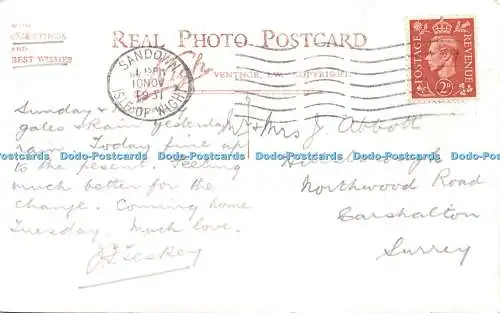 WITH
GREETINGS
AND
BEST WISHES
REAL PHOTO POSTCARD
VENTNOR, I.W. COPYRIGHT
SANDOWN
PM
10 NOV
1951
ISLE OF WIGHT
POSTAGE
REVENUE
2D
Sunday &
gales & rain yesterday
Today fine up
to the present. Feeling
much better for the
change. Coming home
Tuesday. Much love.
Mr & Mrs J Abbott
Northwood Road
Carshalton
Surrey
Dodo-Postcards Dodo-Postcards Dodo-Postcards Dodo-Postcards Dodo-Postcards